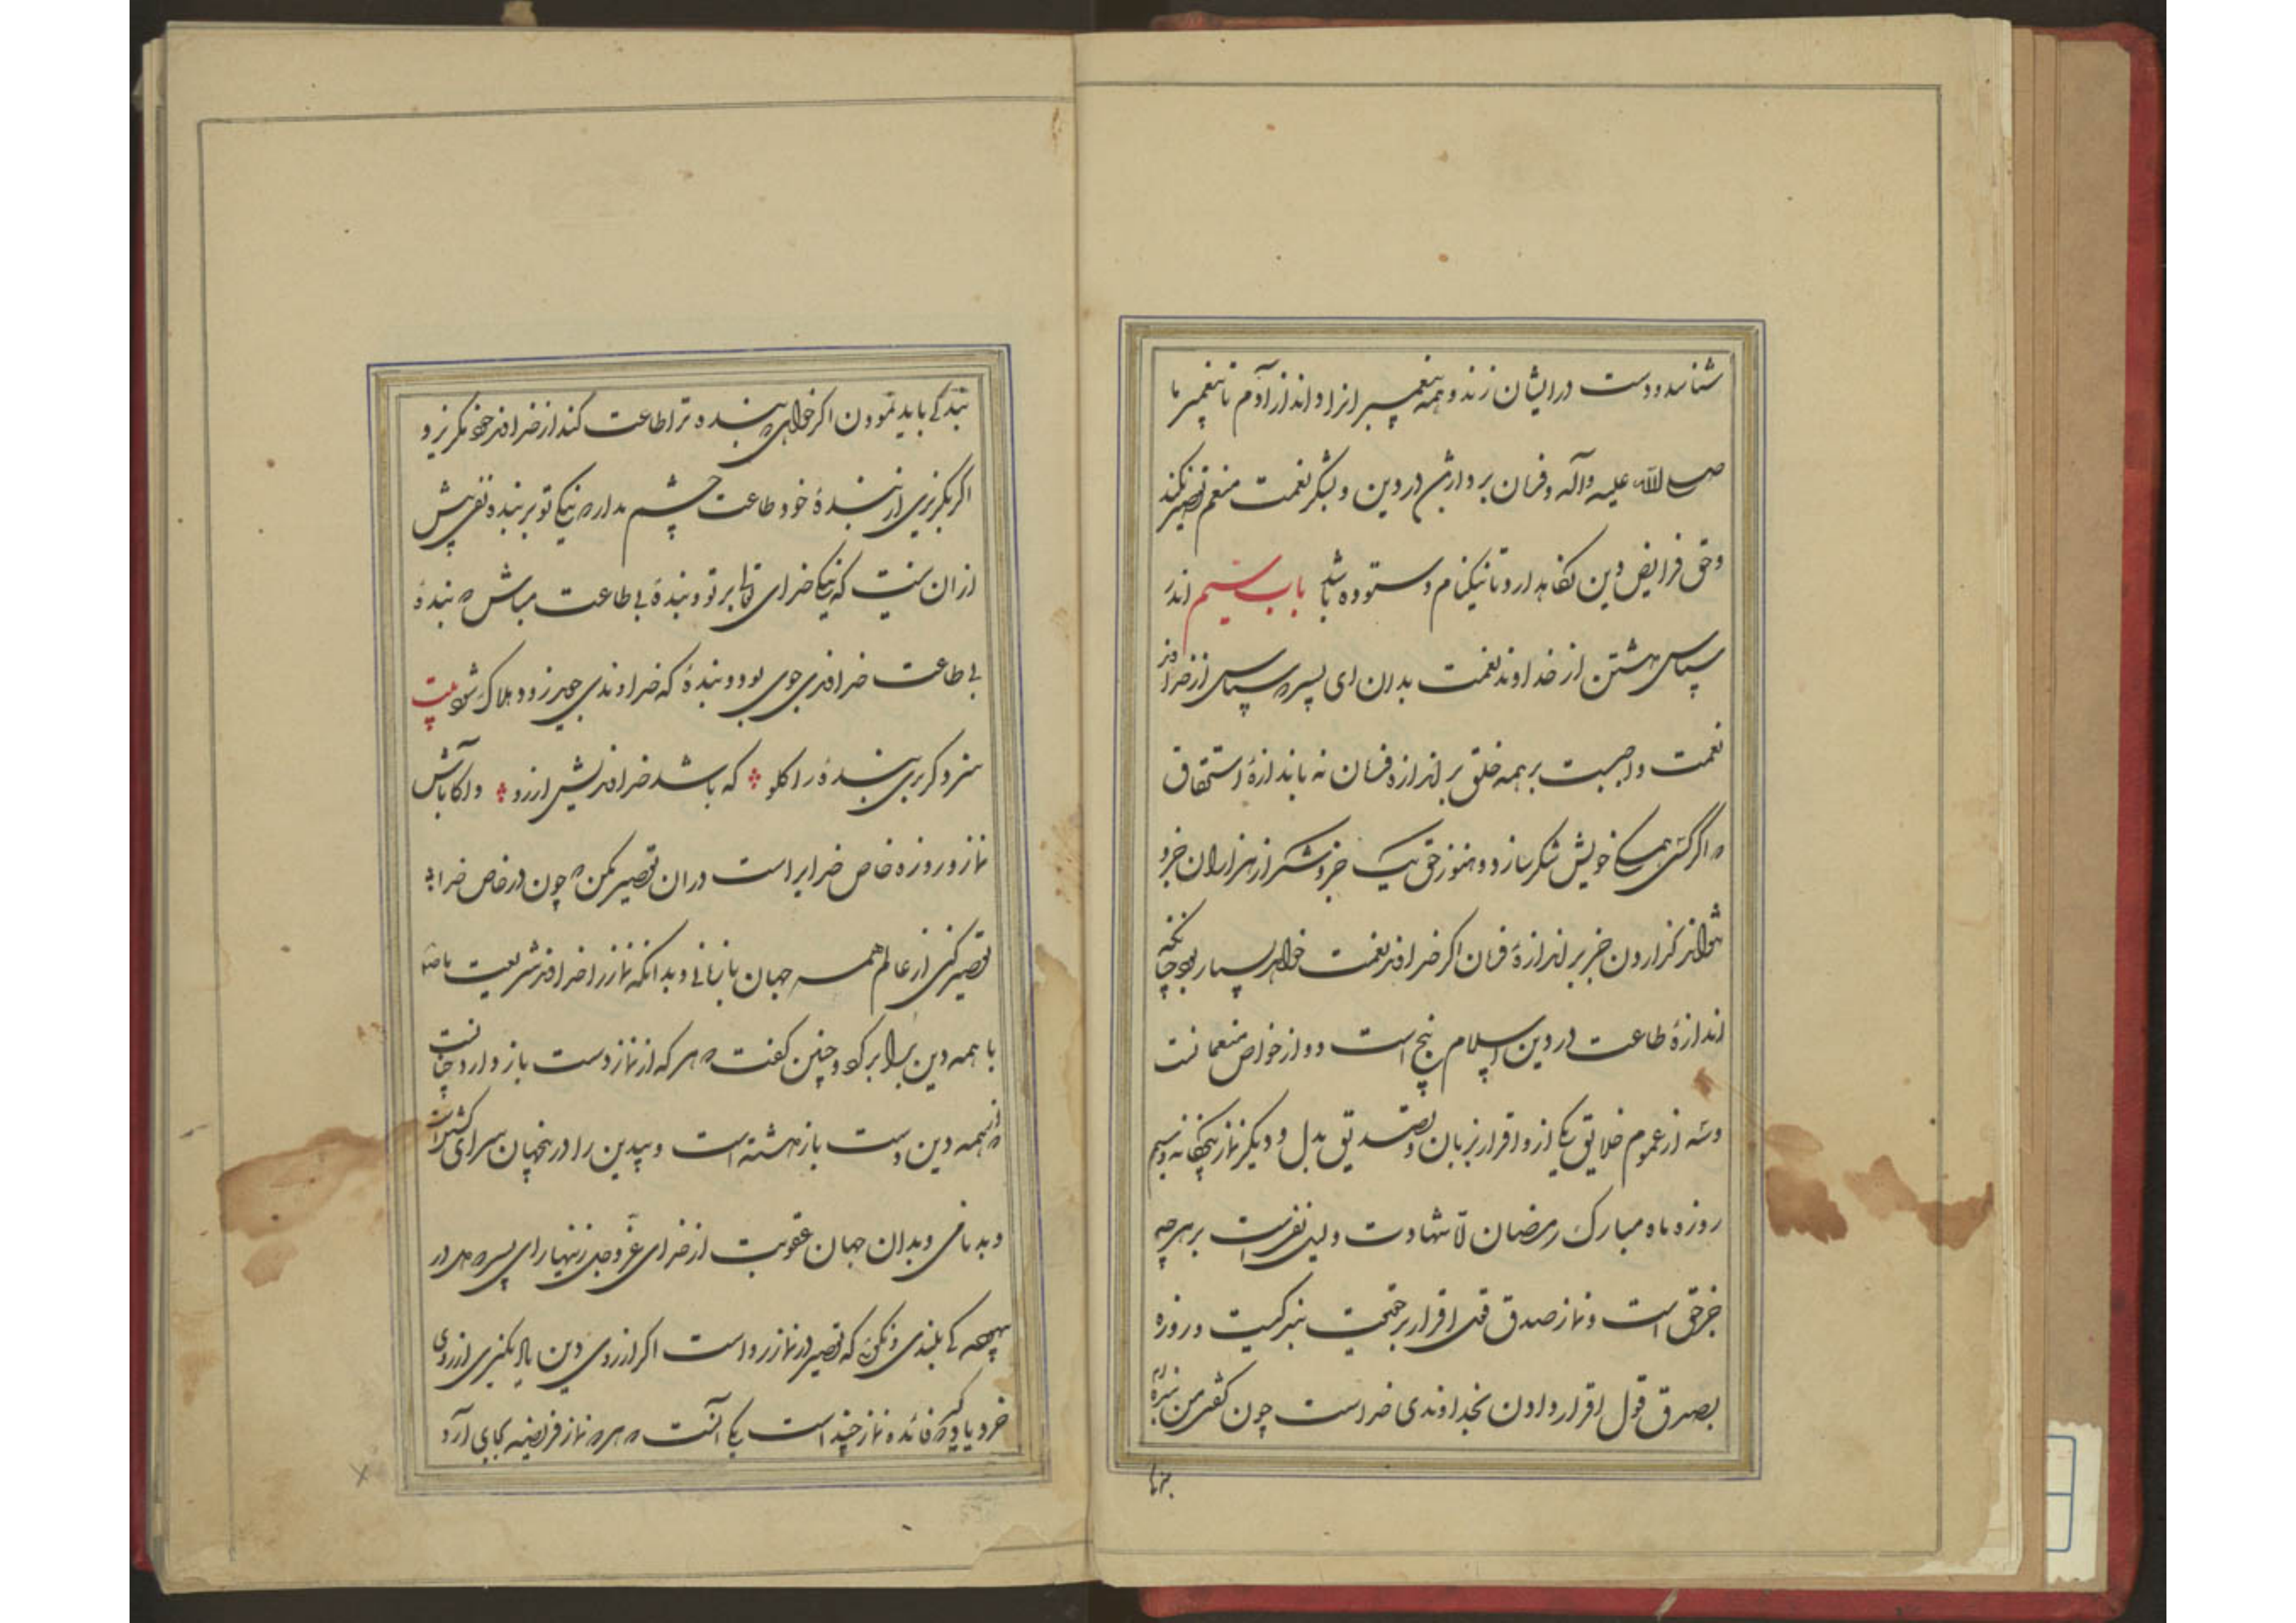 شناسد و دست در ایشان زند و همه پیغمبران را داند از آدم تا پیغمبر ما
صلی الله علیه وآله و فرمان بردارشان در دین و بشکر نعمت منعم تقصیر نکند
وحق فرایض دین نگاهدارد تا نیکنام و ستوده باشد باب سیم اندر
سپاس داشتن از خداوند نعمت بدان ای پسر که سپاس از خداوند
نعمت واجبست بر همه خلق بر اندازه فرمان نه باندازهٔ استحقاق
که اگر کسی همگی خویش شکر سازد و هنوز حق یک جزو شکر از هزاران جزو
نتواند گزاردن جز بر اندازهٔ فرمان اگر خداوند نعمت خواهد بسیار بود چنانکه
اندازهٔ طاعت در دین اسلام پنج است دو از خواص منعمانست
وسه از عموم خلایق یکی ازو اقرار بزبان و تصدیق بدل و دیگر نماز پنجگانه و سیم
روزه ماه مبارک رمضان تا شهادت دلیل نفی است بر هرچه
جز حق است و نماز صدق قول اقرار بر حقیقت بندگیست و روزه
بصدق قول اقرار دادن بخداوندی خداست چون گفتی من بندهٔ
بندگی باید نمودن اگر خواهی که بنده ترا طاعت کند از خداوند خود مگریز و
اگر بگریزی از بندهٔ خود طاعت چشم مدار که نیکی تو بر بنده تو بیش
از ان نیست که نیکی خدای تعالی بر تو و بندهٔ بی طاعت مباش که بندهٔ
بی طاعت خداوندی جوی بود و بندهٔ که خداوندی جوید زود هلاک شود بیت
سزد گر بری بنده را گلو که باشد خداوندیش آرزو و آگاه باش
نماز و روزه خاص خدایراست در ان تقصیر مکن که چون در خاص خدای
تقصیر کنی از عام همه جهان بازمانی و بدانکه نماز را خداوند شریعت ما
با همه دین برابر کرد و چنین گفت که هر که از نماز دست باز دارد چنانست
که از همه دین دست باز داشته است و بیدین را در اینجهان سزای کشتن است
و بدنامی و بدان جهان عقوبت از خدای عزوجل زنهار ای پسر که در
که بلندی و نگوئی که تقصیر در نماز رواست اگر از روی دین یاد نگیری از روی
خرد یاد گیر که فائده نماز چند است یکی آنست که هر که نماز فریضه بجای آرد